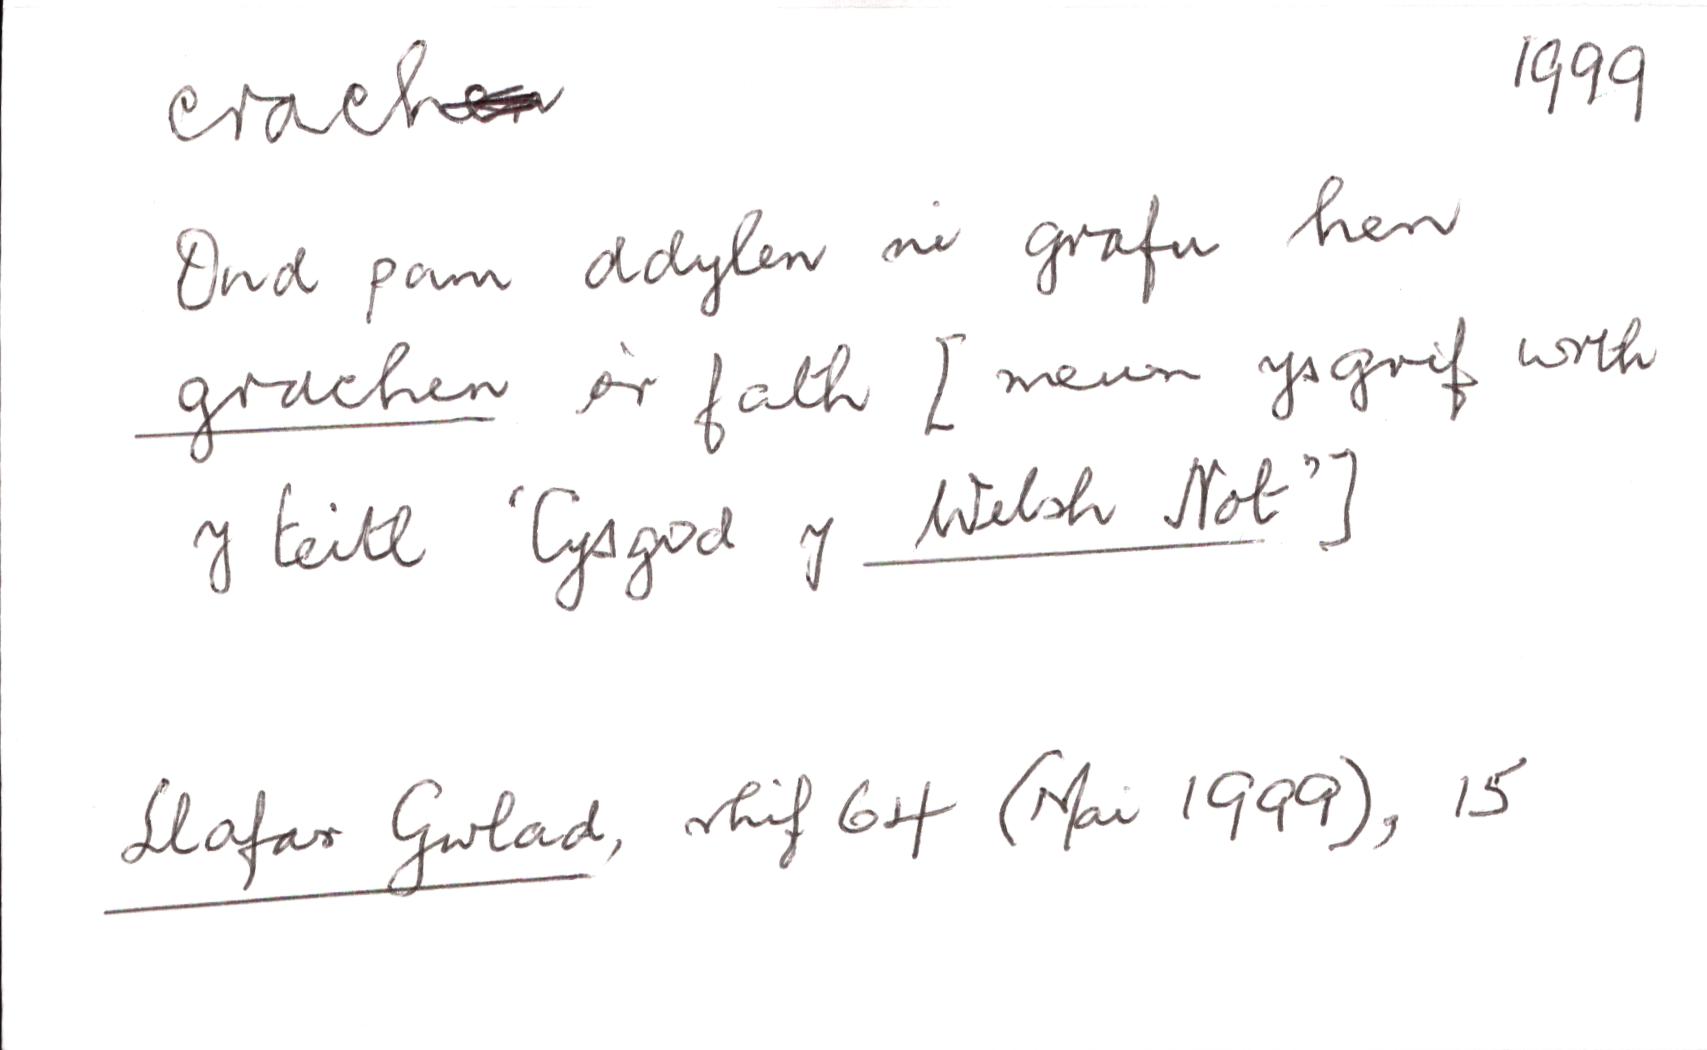 crach 1999
Ond pam ddylen ni grafu hen
grachen o'r fath [mewn ysgrif wrth
y teitl 'Cysgod y Welsh Not']
Llafar Gwlad, rhif 64 (Mai 1999), 15